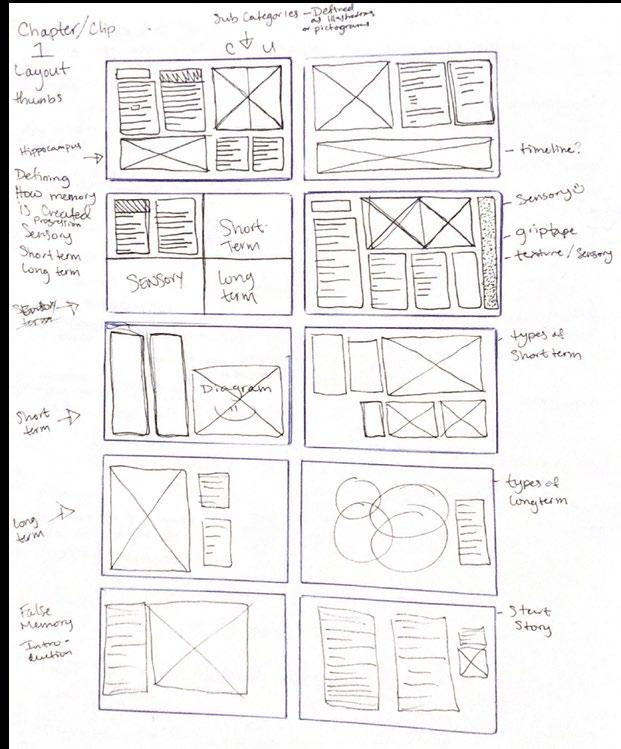 Chapter/Clip
1
Layout
thumbs
Sub Categories - Defined
as illustrations
or pictograms
C U
Hippocampus
timeline?
Defining
How memory
is Created
Progression
Sensory
Short term
Long term
Short-
Term
SENSORY
Long
term
Sensory
griptape
texture/Sensory
Sensory
term
Diagram
types of
Short term
Short
term
types of
longterm
Long
term
False
Memory
Intro-
duction
Start
Story